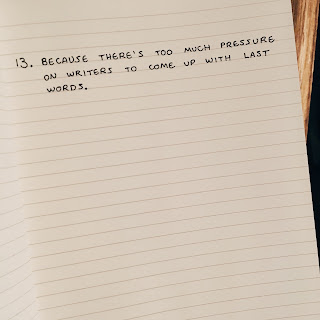 13. BECAUSE THERE'S TOO MUCH PRESSURE
ON WRITERS TO COME UP WITH LAST
WORDS.